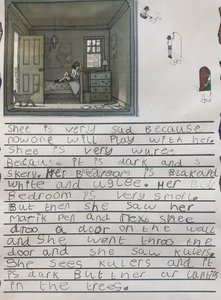 Shee is very sad Because
nowone will Play with here.
Shee is very wure.
Because it is dark and s
skery. Her Bedroom is Blakand
white and uglee. Her
Bedroom is very smorl.
But then she saw her
marik Pen and next shee
droo a door on the wall
and she went throo the
door and she saw kulers.
She sees kulers and it
is dark But ther ar lanths
in the trees.